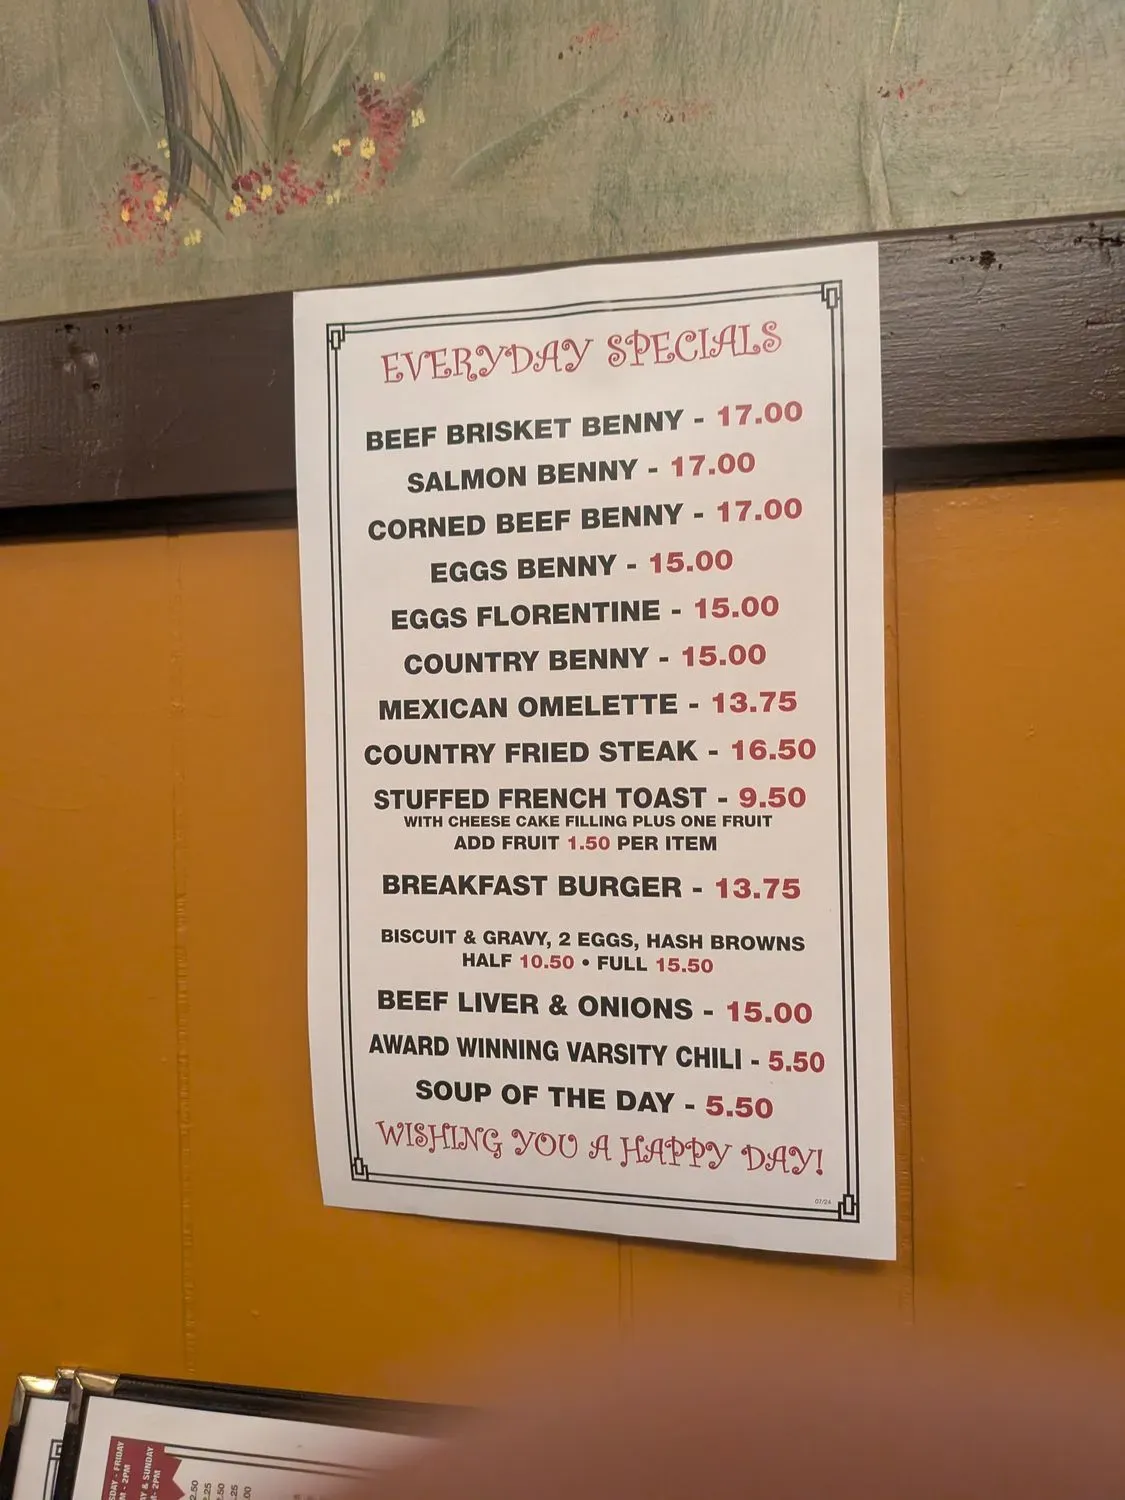 EVERYDAY SPECIALS
BEEF BRISKET BENNY - 17.00
SALMON BENNY - 17.00
CORNED BEEF BENNY - 17.00
EGGS BENNY - 15.00
EGGS FLORENTINE - 15.00
COUNTRY BENNY - 15.00
MEXICAN OMELETTE - 13.75
COUNTRY FRIED STEAK - 16.50
STUFFED FRENCH TOAST - 9.50
WITH CHEESE CAKE FILLING PLUS ONE FRUIT
ADD FRUIT 1.50 PER ITEM
BREAKFAST BURGER - 13.75
BISCUIT & GRAVY, 2 EGGS, HASH BROWNS
HALF 10.50 • FULL 15.50
BEEF LIVER & ONIONS - 15.00
AWARD WINNING VARSITY CHILI - 5.50
SOUP OF THE DAY - 5.50
WISHING YOU A HAPPY DAY!
07/24
- FRIDAY
- 2PM
& SUNDAY
- 2PM